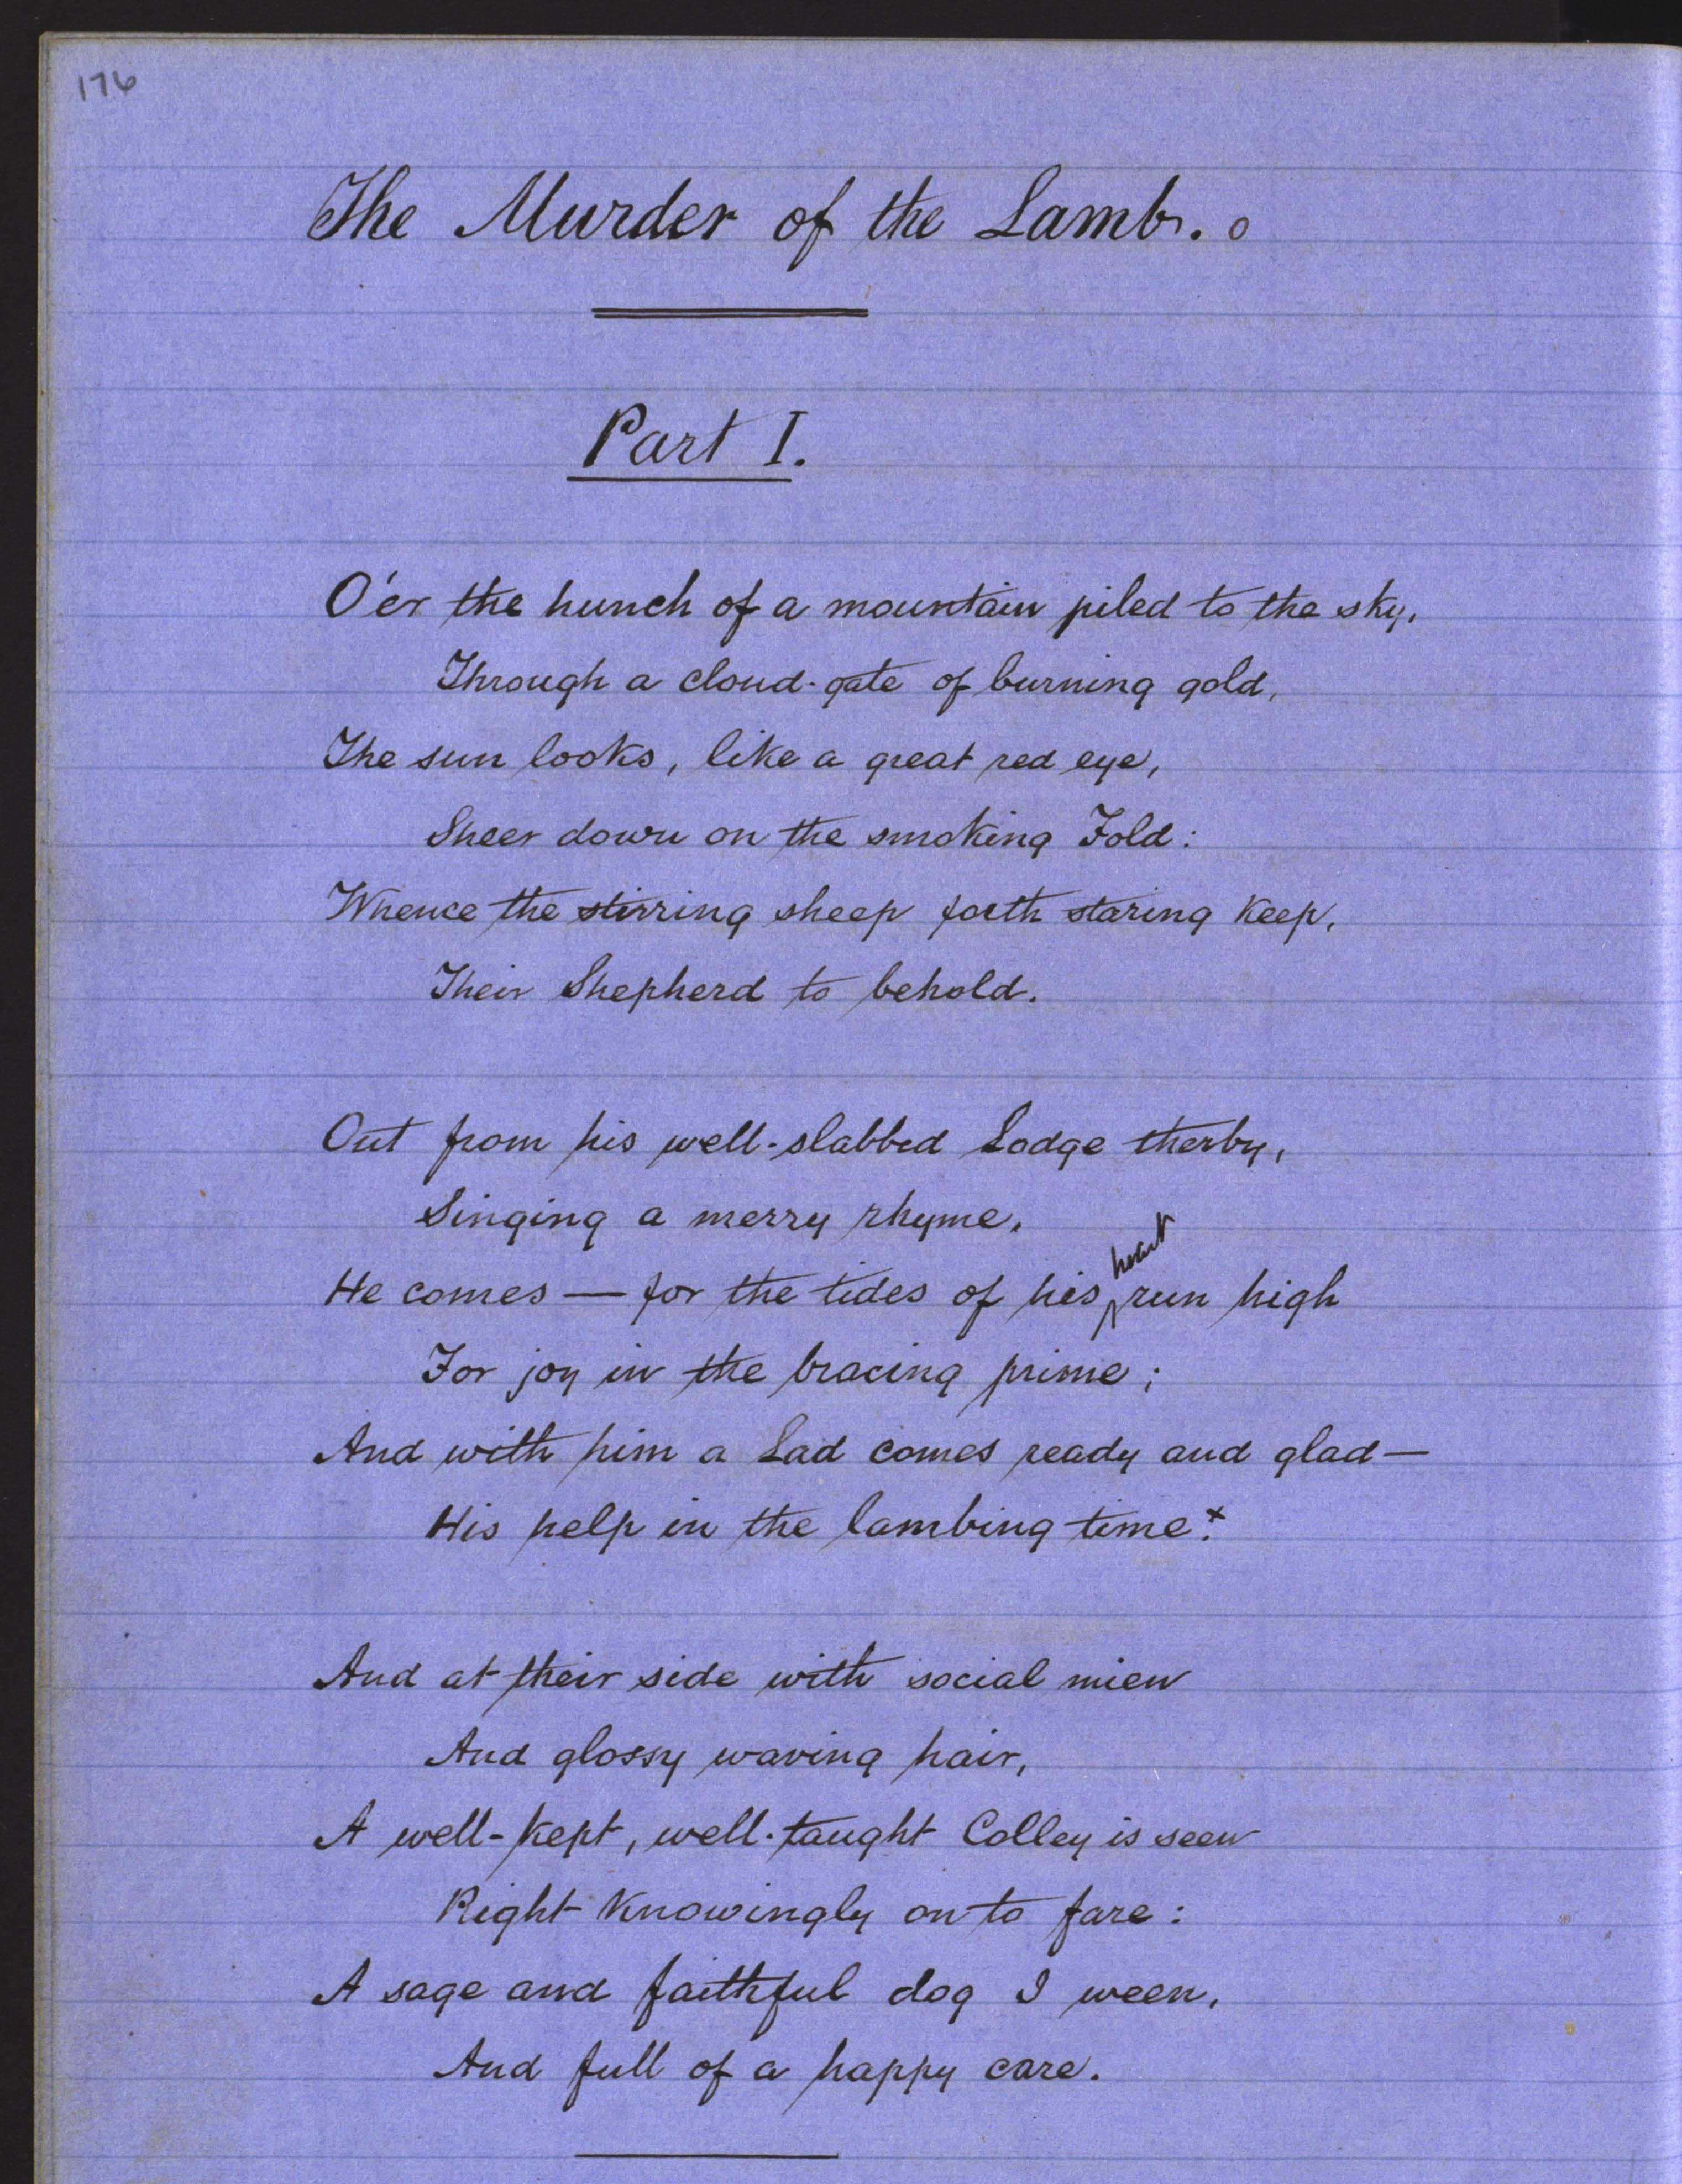 176
The Murder of the Lamb. o
Part I.
O'er the hunch of a mountain piled to the sky,
Through a cloud-gate of burning gold,
The sun looks, like a great red eye,
Sheer down on the smoking Fold:
Whence the stirring sheep forth staring keep,
Their Shepherd to behold.
Out from his well-slabbed Lodge therby,
Singing a merry rhyme,
He comes — for the tides of his heart run high
For joy in the bracing prime;
And with him a Lad comes ready and glad—
His help in the lambing time.x
And at their side with social mien
And glossy waving hair,
A well-kept, well-taught Colley is seen
Right knowingly on to fare:
A sage and faithful dog I ween,
And full of a happy care.